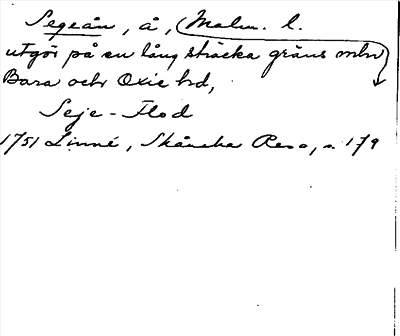 Segeån, å, Malm. l.
utgör på en lång sträcka gräns mln
Bara och Oxie hd,
Seje-Flod
1751 Linné, Skånska Resa, s. 179